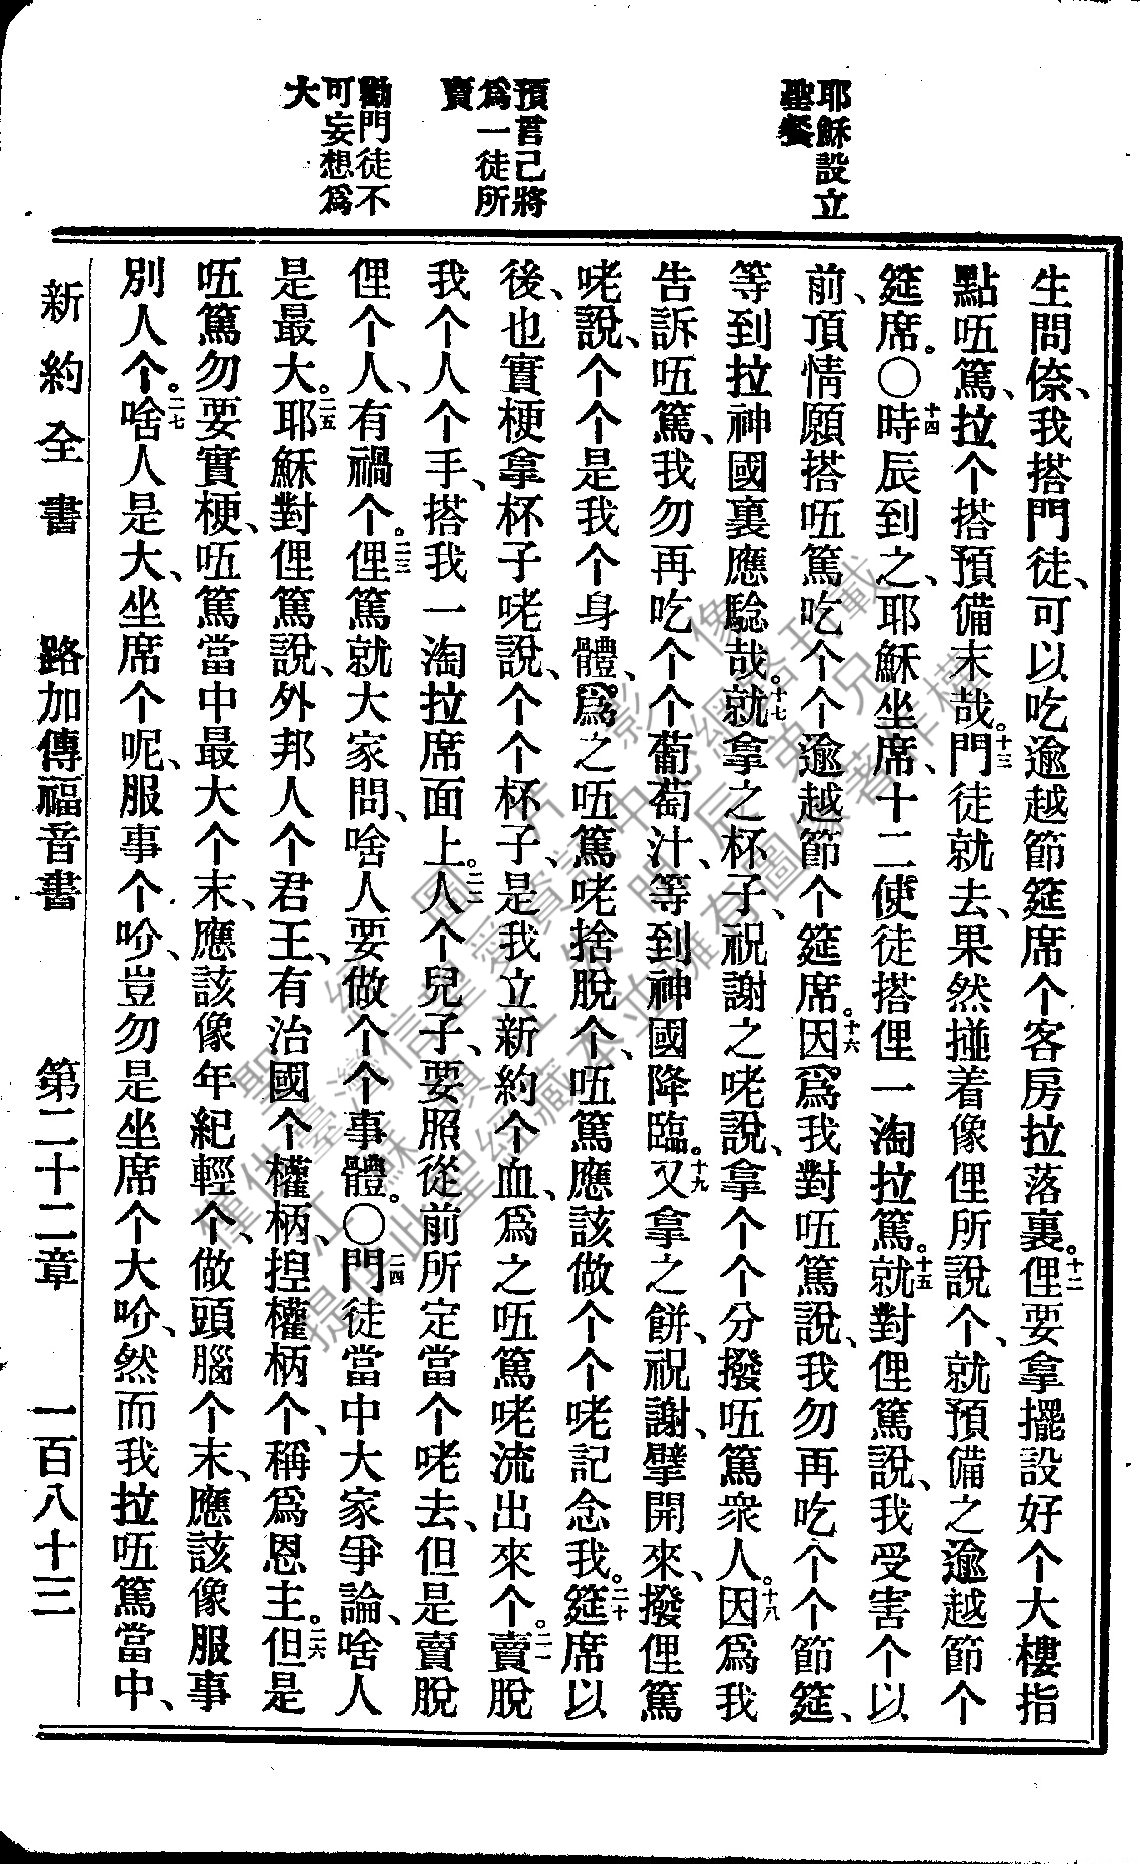 耶穌設立
聖餐
預言己將
爲一徒所
賣
勸門徒不
可妄想爲
大
生問倷、我搭門徒、可以吃逾越節筵席个客房拉落裏。十二俚要拿擺設好个大樓指
點㕶篤、拉个搭預備末哉。十三門徒就去、果然掽着像俚所說个、就預備之逾越節个
筵席。〇十四時辰到之、耶穌坐席、十二使徒搭俚一淘拉篤。十五就對俚篤說、我受害个以
前、頂情願搭㕶篤吃个个逾越節个筵席。十六因爲我對㕶篤說、我勿再吃个个節筵、
等到拉神國裏應驗哉。十七就拿之杯子、祝謝之咾說、拿个个分撥㕶篤衆人。十八因爲我
告訴㕶篤、我勿再吃个个葡萄汁、等到神國降臨。十九又拿之餅、祝謝、擘開來、撥俚篤
咾說、个个是我个身體、爲之㕶篤咾捨脫个、㕶篤應該做个个咾記念我。二十筵席以
後、也實梗拿杯子咾說、个个杯子、是我立新約个血、爲之㕶篤咾流出來个。二一賣脫
我个人个手、搭我一淘拉席面上。二二人个兒子、要照從前所定當个咾去、但是賣脫
俚个人、有禍个。二三俚篤就大家問、啥人要做个个事體。〇二四門徒當中大家爭論、啥人
是最大。二五耶穌對俚篤說、外邦人个君王、有治國个權柄、揑權柄个、稱爲恩主。二六但是
㕶篤勿要實梗、㕶篤當中最大个末、應該像年紀輕个、做頭腦个末、應該像服事
別人个。二七啥人是大、坐席个呢、服事个吤、豈勿是坐席个大吤、然而我拉㕶篤當中、
新約全書　路加傳福音書　第二十二章　一百八十三
聖經圖片影像
僅供臺灣信望愛資訊中心網路刊載
江蘇鎮江殷辰英兄
提供此聖經藏本並擁有圖像著作權